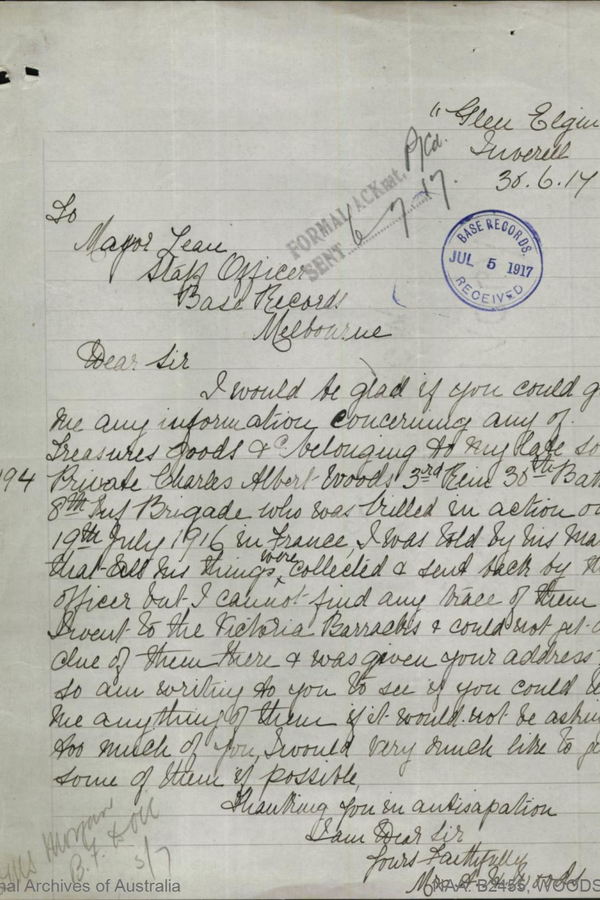 "Glen Elgin
Inverell
30.6.17
FORMAL ACKmt. P/Cd.
SENT 6/7/17.
BASE RECORDS.
JUL 5 1917
RECEIVED
To
Major Lean
Staff Officer
Base Records
Melbourne
Dear Sir
I would be glad if you could g
me any information concerning any of
Treasures goods & c belonging to my late so
194 Private Charles Albert Woods 3rd Rein 30th Bat
8th Inf Brigade who was killed in action o
19th July 1916 in France, I was told by his Ma
that all his things were collected & sent back by th
officer but I cannot find any trace of them
I went to the Victoria Barracks & could not get a
clue of them there & was given your address
so am writing to you to see if you could
me anything of them if it would not be askin
too much of you, I would very much like to ge
some of them if possible,
Thanking you in antisapation
I am Dear Sir
Yours Faithfully
Mrs Woods
Morgan
B.F.
5/7
nal Archives of Australia
NAA: B2455, WOODS